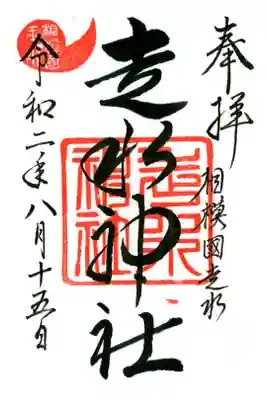 奉拝
相模國走水
走水神社
走水神社
令和二年八月十五日